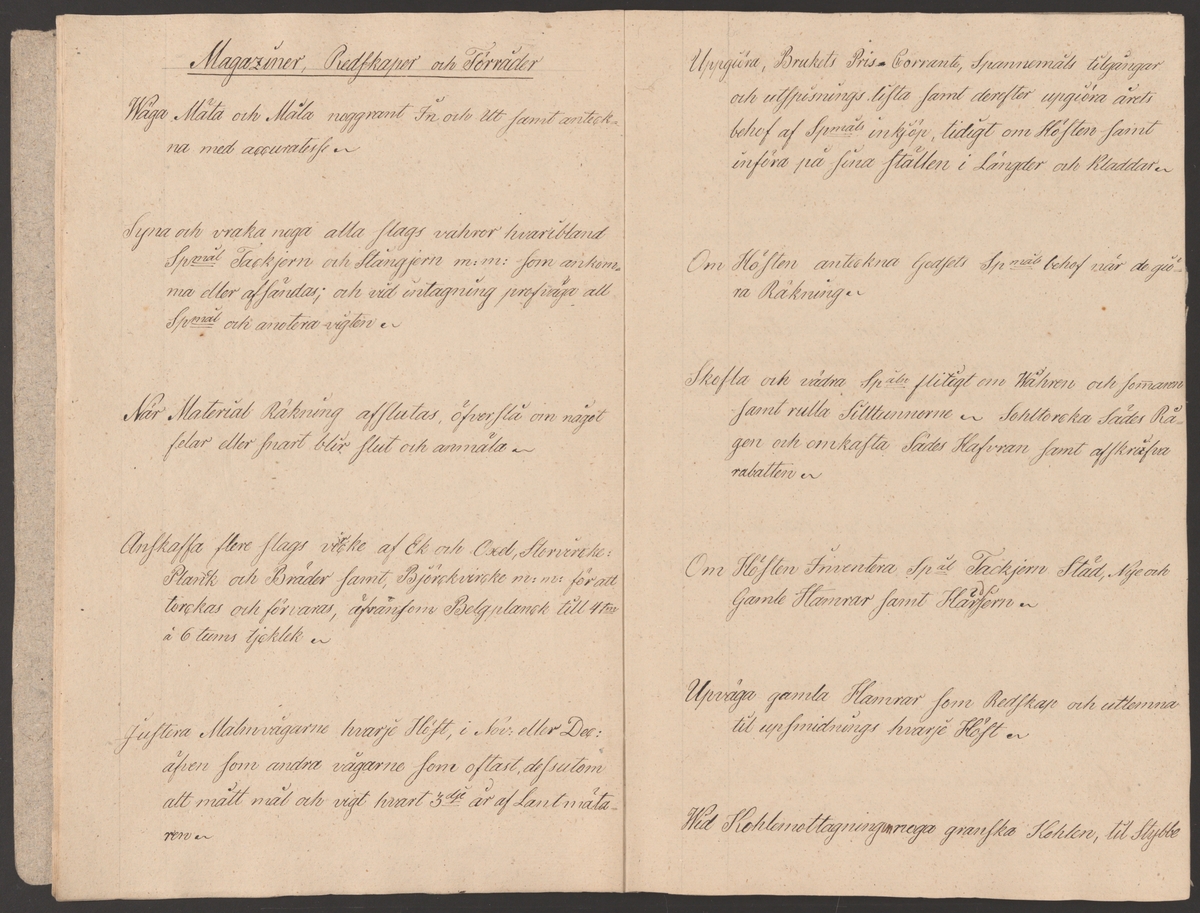 Magaziner, Redskaper och Förråder
Wäga Mäta och Måla noggrant In och Utt samt anteck-
na med accuratesse
Syna och vraka noga alla slags vahror hvaribland
Spmål Tackjern och Stångjern m:m: som ankom-
ma eller afsändas; och vid intagning profväga all
Spmål och anotera vigten
När Material Räkning afslutas, öfverslå om något
felar eller snart blir slut och anmäla
Anskaffa flere slags vircke af Ek och Oxel, Storvircke:
Planck och Bräder samt, Björckvircke m:m: för att
torckas och förvaras, äfvensom Belgplanck till 4 tms
à 6 tums tjoklek
Justera Malmvågarne hvarje Höst, i Nov: eller Dec:
äfven som andra vågarne som oftast, dessutom
att mått mål och vigt hvart 3dje år af Lantmäta-
ren
Uppgiöra, Brukets Pris-Corrante, Spannemåls tilgångar
och utspisnings lista samt derefter upgiöra årets
behof af Spmåls inköp, tidigt om Hösten samt
införa på sina ställen i Längder och Kladdar
Om Hösten anteckna Godsets Spmåls behof när de giö-
ra Räkning
Skofla och vädra Spmåln flitigt om Wåhren och somaren
samt rulla Silltunnorne Sohltorcka Sädes Rå-
gen och omkasta Sädes Hafvran samt afskrifva
rabatten
Om Hösten Inventera Spål Tackjern Städ, Nye och
Gamle Hamrar samt Härdjern
Upväga gamla Hamrar som Redskap och utlemna
til upsmidnings hvarje Höst
Wid Kohlemottagning noga granska Kohlen, til Stybbe